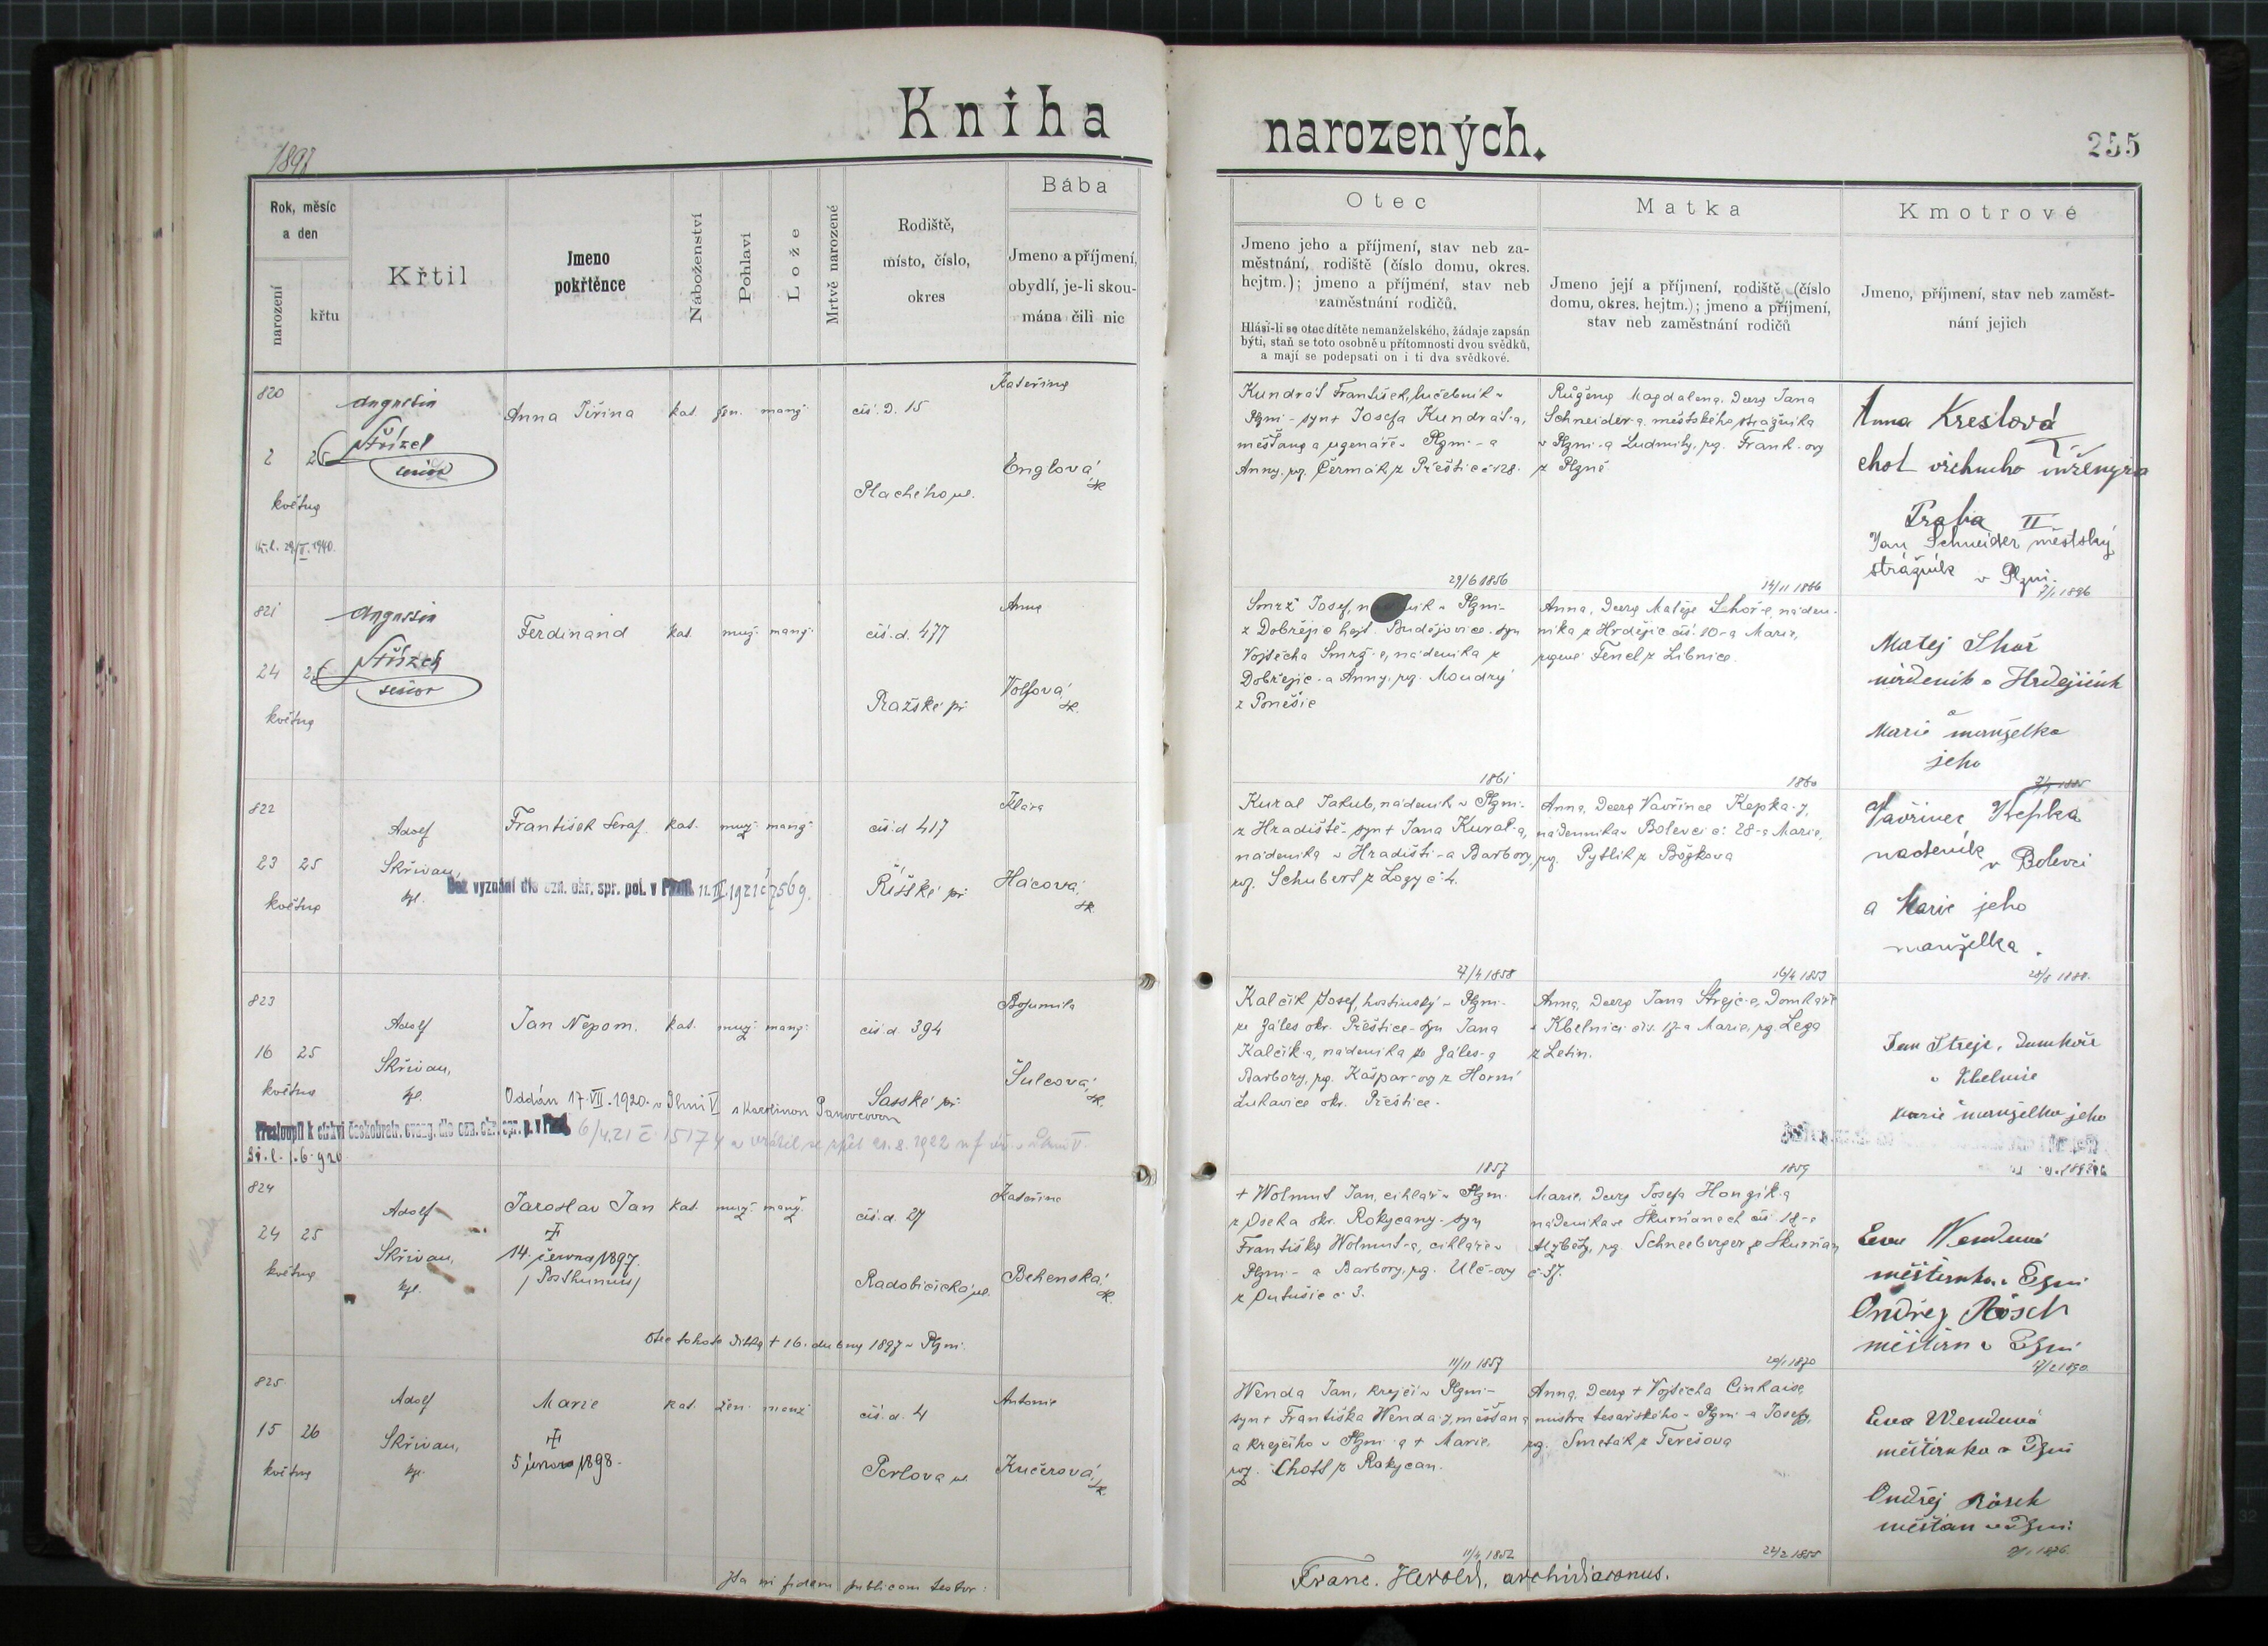 Kniha
narozených.
255
1897
Rok, měsíc
a den
narození
křtu
Křtil
Jmeno
pokřtěnce
Náboženství
Pohlaví
Lože
Mrtvě narozené
Rodiště,
místo, číslo,
okres
Bába
Jmeno a příjmení,
obydlí, je-li skou-
mána čili nic
Otec
Jmeno jeho a příjmení, stav neb za-
městnání, rodiště (číslo domu, okres.
hejtm.); jmeno a příjmení, stav neb
zaměstnání rodičů.
Hlásí-li se otec dítěte nemanželského, žádaje zapsán
býti, staň se toto osobně u přítomnosti dvou svědků,
a mají se podepsati on i ti dva svědkové.
Matka
Jmeno její a příjmení, rodiště (číslo
domu, okres. hejtm.); jmeno a příjmení,
stav neb zaměstnání rodičů
Kmotrové
Jmeno, příjmení, stav neb zaměst-
nání jejich
820
2 25
května
Augustin
Střízek
senior
Anna Jiřina
kat. žen. manž.
čís. d. 15
Plachého ul.
Kateřina
Englová
Kundrát František, lučebník v
Plzni - syn + Josefa Kundrát-a,
měšťana a uzenáře v Plzni - a
Anny, roz. Čermák z Přeštic č. 128.
29/6 1856
Růžena Magdalena, dcera Jana
Schneider-a, městského strážníka
v Plzni - a Ludmily, roz. Frank-ovy
z Plzně
14/11 1866
Anna Kreslová
choť vrchního inženýra
Praha II
Jan Schneider městský
strážník v Plzni.
7/1 1896
821
24 25
května
Augustin
Střízek
senior
Ferdinand
kat. muž. manž.
čís. d. 477
Pražské př.
Anna
Volfová
Smrž Josef, v Plzni -
z Dobřejic hejt. Budějovice - syn
Vojtěcha Smrž-e, nádeníka z
Dobřejic - a Anny, roz. Moudrý
z Poněšic
1861
Anna, dcera Matěje Lhoř-e, náden-
níka z Hrdějic čís. 10 - a Marie,
rozené Fencl z Libnice.
1860
Matej Lhoř
nádeník v Hrdějicích
a
Marie manželka
jeho
822
23 25
května
Adolf
Skřivan,
kpl.
František Seraf.
kat. muž. manž.
čís. d. 417
Říšské př.
Klára
Hácová
Bez vyznání dle ozn. okr. spr. pol. v Plzni 11. III 1921 č 7569.
Kural Jakub, nádeník v Plzni -
z Hradiště - syn + Jana Kural-a,
nádeníka v Hradišti - a Barbory,
roz. Schubert z Logy č 4.
27/4 1858
Anna, dcera Vavřince Kepka-y,
nádenníka v Bolevci č. 28 - a Marie,
roz. Pytlík z Božkova
16/4 1859
Vavřinec Kepka
nádeník v Bolevci
a Marie jeho
manželka.
28/8 1888.
823
16 25
května
Adolf
Skřivan,
kpl.
Jan Nepom.
kat. muž. manž.
čís. d. 394
Saské př.
Bohumila
Šulcová
Oddán 17. VII. 1920. v Plzni V s Karolinou
Přestoupil k církvi českobratr. evang. dle ozn. okr. spr. p. v Plzni 6/4.21 č. 15174 a vrátil se zpět 21. 8. 1922
Kalčík Josef, hostinský v Plzni -
ze Záles okr. Přeštice - syn Jana
Kalčík-a, nádeníka ze Záles - a
Barbory, roz. Kašpar-ovy z Horní
Lukavice okr. Přeštice -
1857
Anna, dcera Jana Strejc-e, domkáře
v Kbelnici čís. 17 - a Marie, roz. Lega
z Letin.
1859
Jan Strejc, domkář
v Kbelnici
Marie manželka jeho
824
24 25
května
Adolf
Skřivan,
kpl.
Jaroslav Jan
14. června 1897.
/ Posthumus /
kat. muž. manž.
čís. d. 27
Radobičická ul.
Kateřina
Behenská
Otec tohoto dítěte + 16. dubna 1897 v Plzni.
+ Wolmut Jan, cihlář v Plzni -
z Oseka okr. Rokycany - syn
Františka Wolmut-a, cihláře v
Plzni - a Barbory, roz. Ulč-ovy
z č. 3.
11/11 1857
Marie, dcera Josefa Hongík-a
nádeníka ve Skurňanech čís. 18 - a
Alžběty, roz. Schneeberger ze Skurňan
č. 37.
20/1 1870
Eva Wendová
měšťanka v Plzni
Ondřej Rösch
měšťan v Plzni
825
15 26
května
Adolf
Skřivan,
kpl.
Marie
5 února 1898.
kat. žen. manž
čís. d. 4
Perlova ul.
Antonie
Kučerová
Wenda Jan, krejčí v Plzni -
syn + Františka Wenda-y, měšťana
a krejčího v Plzni - a + Marie,
roz. Chott z Rokycan.
11/4 1852
Anna, dcera + Vojtěcha Cinkaise,
mistra tesařského v Plzni - a Josefy,
roz. Smeták z Terešova
24/2 1855
Eva Wendová
měšťanka v Plzni
Ondřej Rösch
měšťan v Plzni
Ita in fidem publicam testor:
Franc. Herold, archidiaconus.